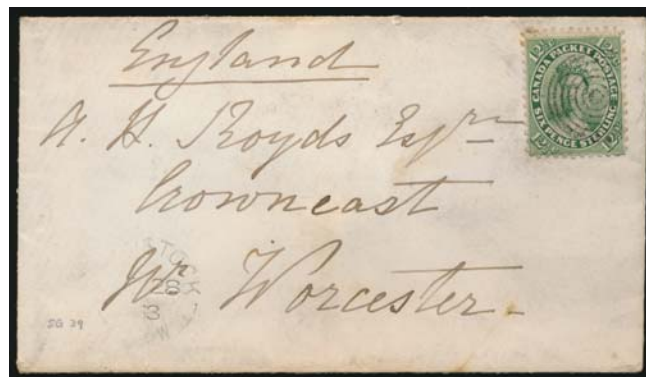 England
A. H. Royds Esqre
Crowneast
Nr Worcester
12½
CANADA PACKET POSTAGE
SIX PENCE STERLING
12½
SG 39
28
3